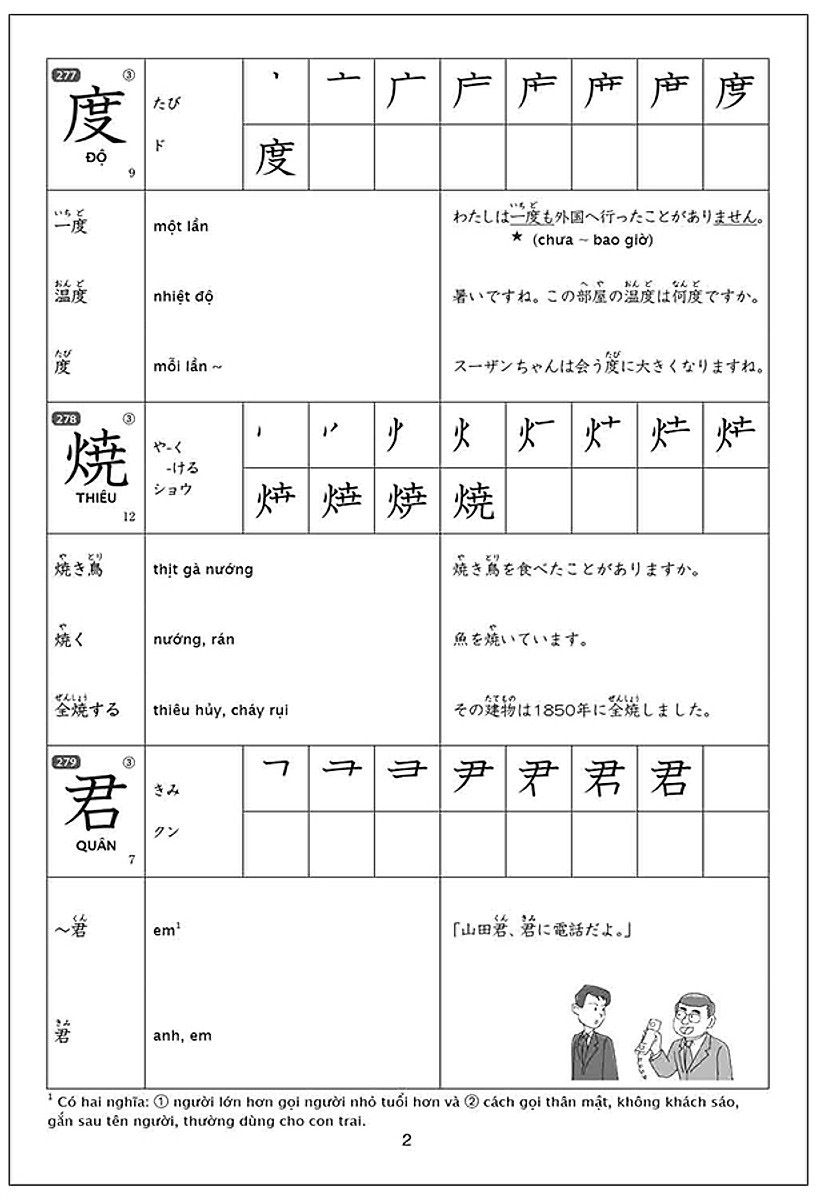 277 ③
度
ĐỘ
9
たび
ド
度
一度 いちど
một lần
わたしは一度も外国へ行ったことがありません。
いちど
★ (chưa ~ bao giờ)
温度 おんど
nhiệt độ
暑いですね。この部屋の温度は何度ですか。
へや おんど なんど
度 たび
mỗi lần ~
スーザンちゃんは会う度に大きくなりますね。
たび
278 ③
焼
THIÊU
12
や-く
-ける
ショウ
焼
焼き鳥 や とり
thịt gà nướng
焼き鳥を食べたことがありますか。
や とり
焼く や
nướng, rán
魚を焼いています。
や
全焼する ぜんしょう
thiêu hủy, cháy rụi
その建物は1850年に全焼しました。
たてもの ぜんしょう
279 ③
君
QUÂN
7
きみ
クン
君
~君 くん
em¹
「山田君、君に電話だよ。」
くん きみ
君 きみ
anh, em
¹ Có hai nghĩa: ① người lớn hơn gọi người nhỏ tuổi hơn và ② cách gọi thân mật, không khách sáo,
gắn sau tên người, thường dùng cho con trai.
2